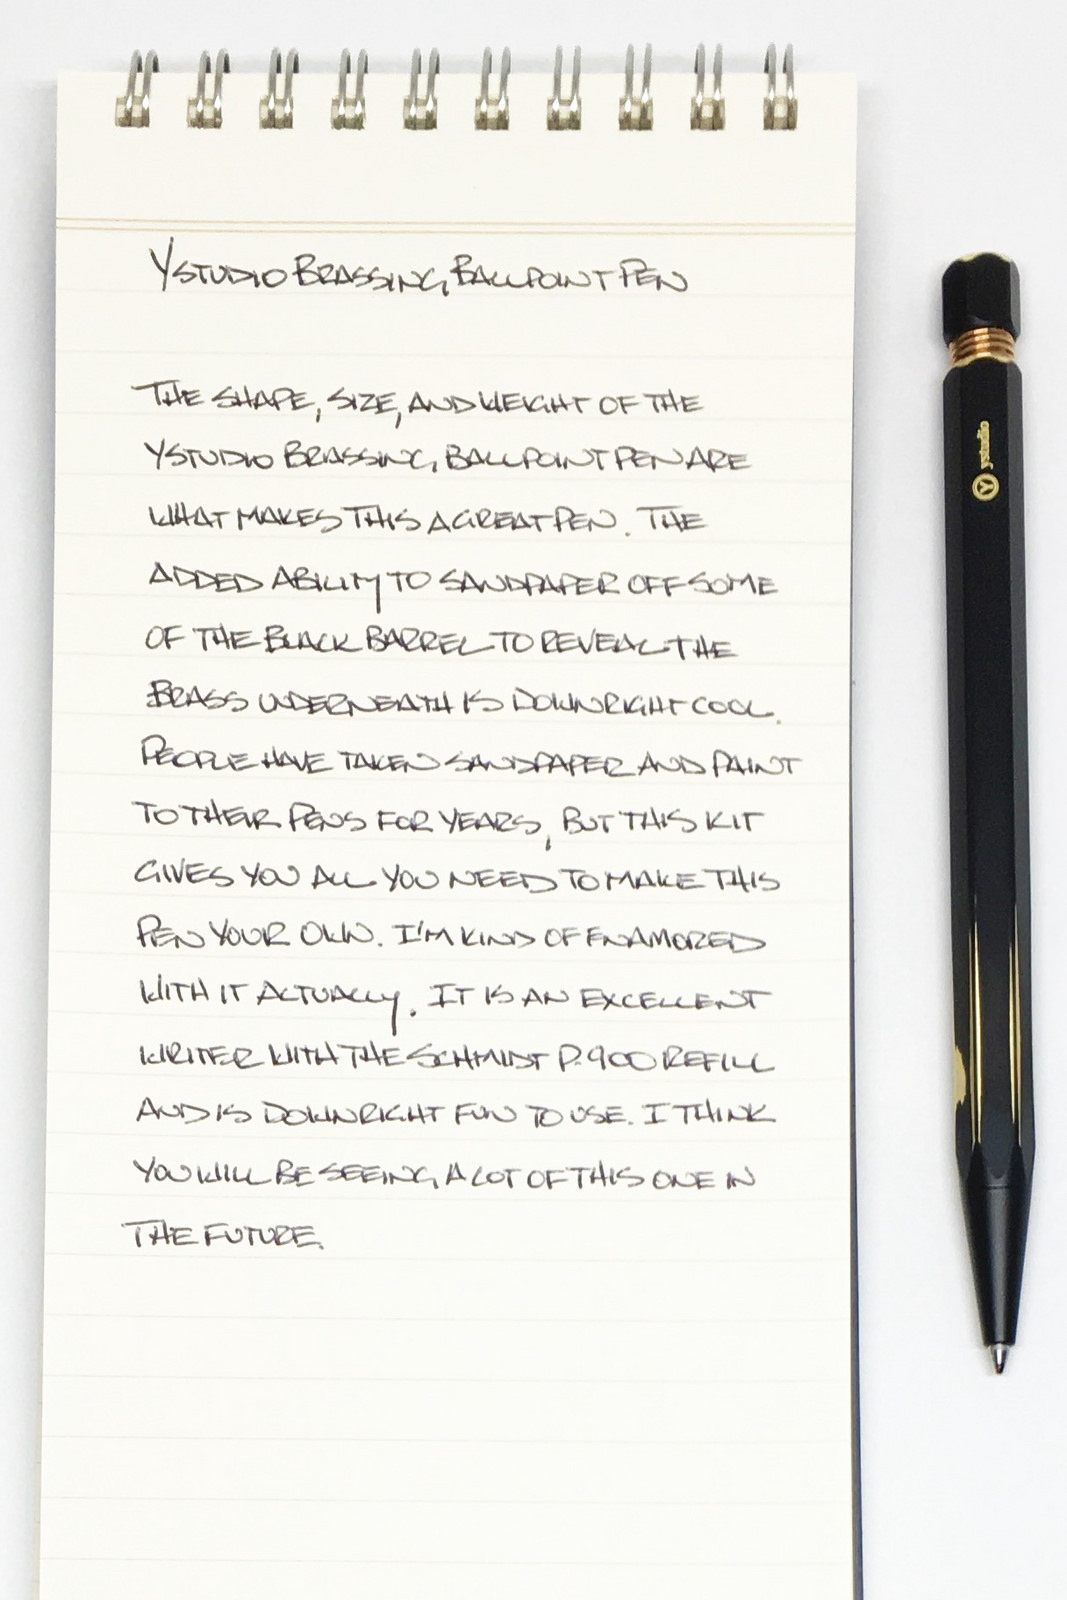 YSTUDIO BRASSING BALLPOINT PEN
THE SHAPE, SIZE, AND WEIGHT OF THE
YSTUDIO BRASSING BALLPOINT PEN ARE
WHAT MAKES THIS A GREAT PEN. THE
ADDED ABILITY TO SANDPAPER OFF SOME
OF THE BLACK BARREL TO REVEAL THE
BRASS UNDERNEATH IS DOWNRIGHT COOL.
PEOPLE HAVE TAKEN SANDPAPER AND PAINT
TO THEIR PENS FOR YEARS, BUT THIS KIT
GIVES YOU ALL YOU NEED TO MAKE THIS
PEN YOUR OWN. I'M KIND OF ENAMORED
WITH IT ACTUALLY. IT IS AN EXCELLENT
WRITER WITH THE SCHMIDT P.900 REFILL
AND IS DOWNRIGHT FUN TO USE. I THINK
YOU WILL BE SEEING A LOT OF THIS ONE IN
THE FUTURE.
Y ystudio